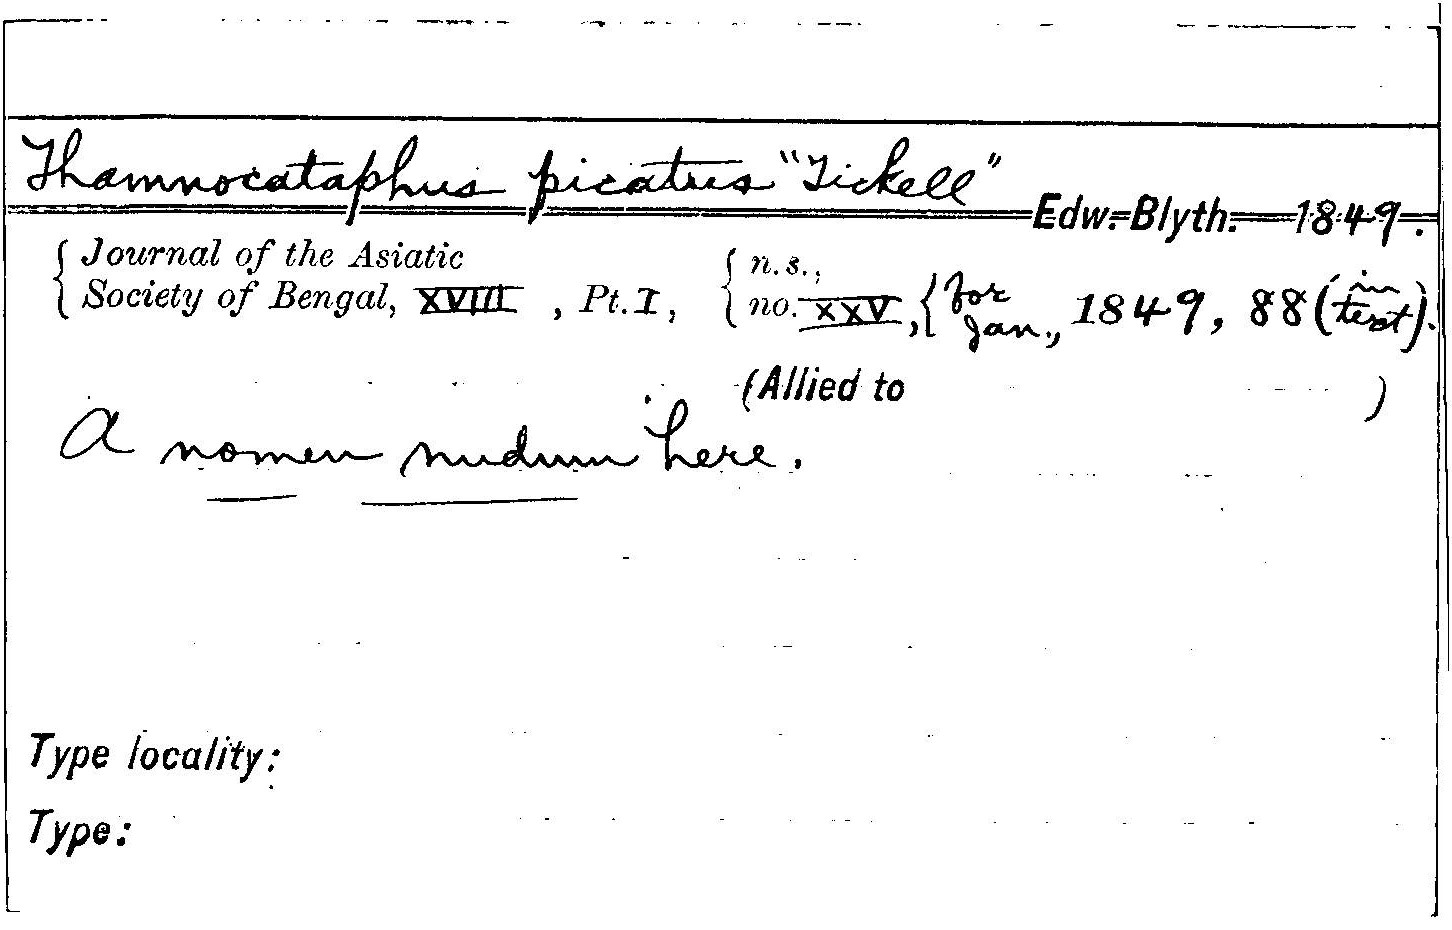 Thamnocataphus picatus "Tickell"
Edw. Blyth. 1849.
Journal of the Asiatic
Society of Bengal, XVIII, Pt. I,
n.s.,
no. XXV, for
Jan., 1849, 88 (in
text).
(Allied to )
A nomen nudum here.
Type locality:
Type: